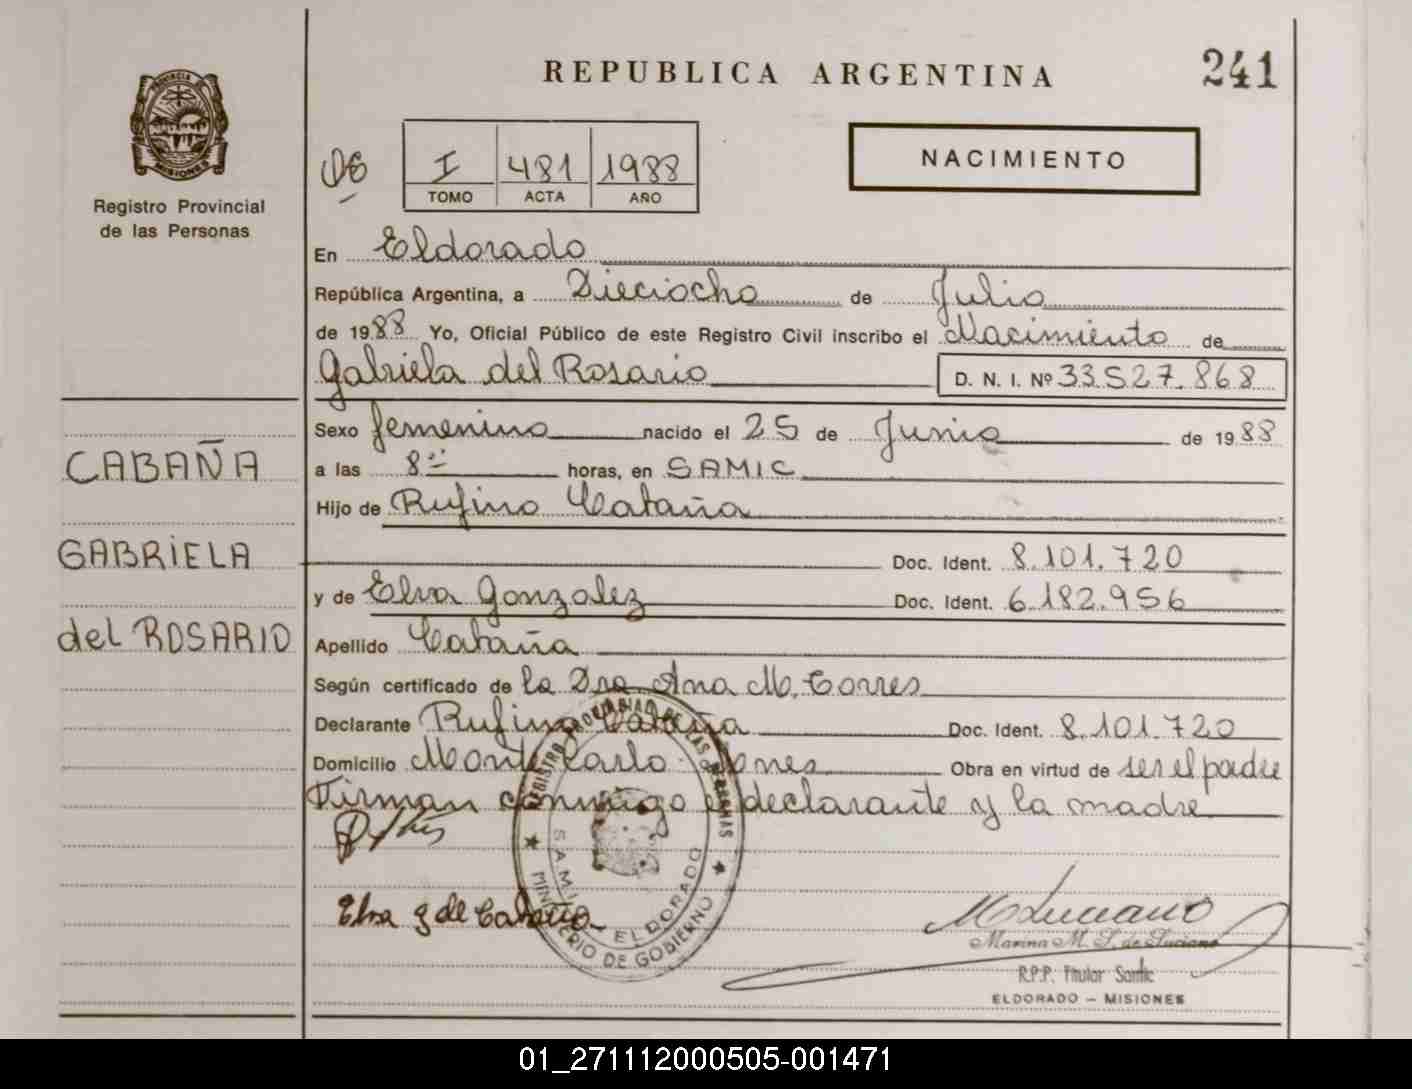 REPUBLICA ARGENTINA
241
PROVINCIA DE
MISIONES
Registro Provincial
de las Personas
I 481 1988
TOMO ACTA AÑO
NACIMIENTO
En Eldorado
República Argentina, a Dieciocho de Julio
de 1988 Yo, Oficial Público de este Registro Civil inscribo el Nacimiento de
Gabriela del Rosario D. N. I. Nº 33.527.868
Sexo femenino nacido el 25 de Junio de 1988
CABAÑA
a las 8 horas, en SAMIC
Hijo de Rufino Cabaña
GABRIELA
Doc. Ident. 8.101.720
y de Elva Gonzalez Doc. Ident. 6.182.956
del ROSARIO
Apellido Cabaña
Según certificado de la Dra. Ana M. Torres
Declarante Rufino Cabaña Doc. Ident. 8.101.720
Domicilio Monte Carlo Mnes Obra en virtud de ser el padre
Firman conmigo el declarante y la madre
REGISTRO PROVINCIAL DE LAS PERSONAS
SAMIC ELDORADO
MINISTERIO DE GOBIERNO
Elva g de Cabaña
M Luciano
Marina M. S. de Luciano
R.P.P. Titular Samic
ELDORADO - MISIONES
01_271112000505-001471